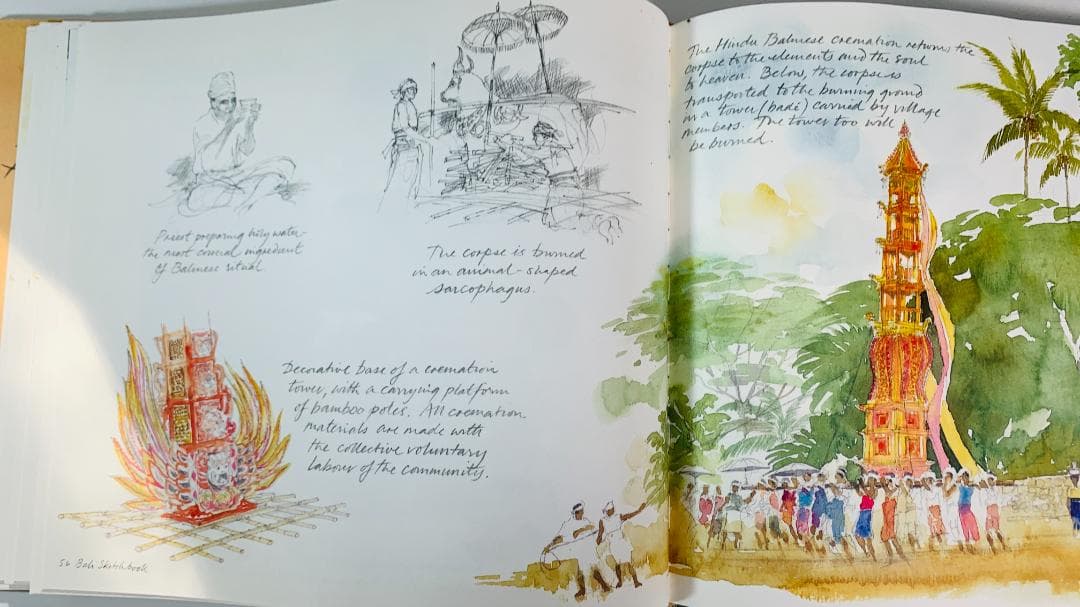 Priest preparing holy water-
the most crucial ingredient
of Balinese ritual
The corpse is burned
in an animal-shaped
sarcophagus.
Decorative base of a cremation
tower, with a carrying platform
of bamboo poles. All cremation
materials are made with
the collective voluntary
labour of the community.
56 Bali Sketchbook
The Hindu Balinese cremation returns the
corpse to the elements and the soul
to heaven. Below, the corpse is
transported to the burning ground
in a tower (badé) carried by village
members. The tower too will
be burned.